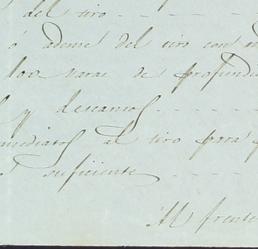 del tiro
ó ademe del tiro con
100 varas de profundi
y descansos
mediatos al tiro para
suficiente
Al frente